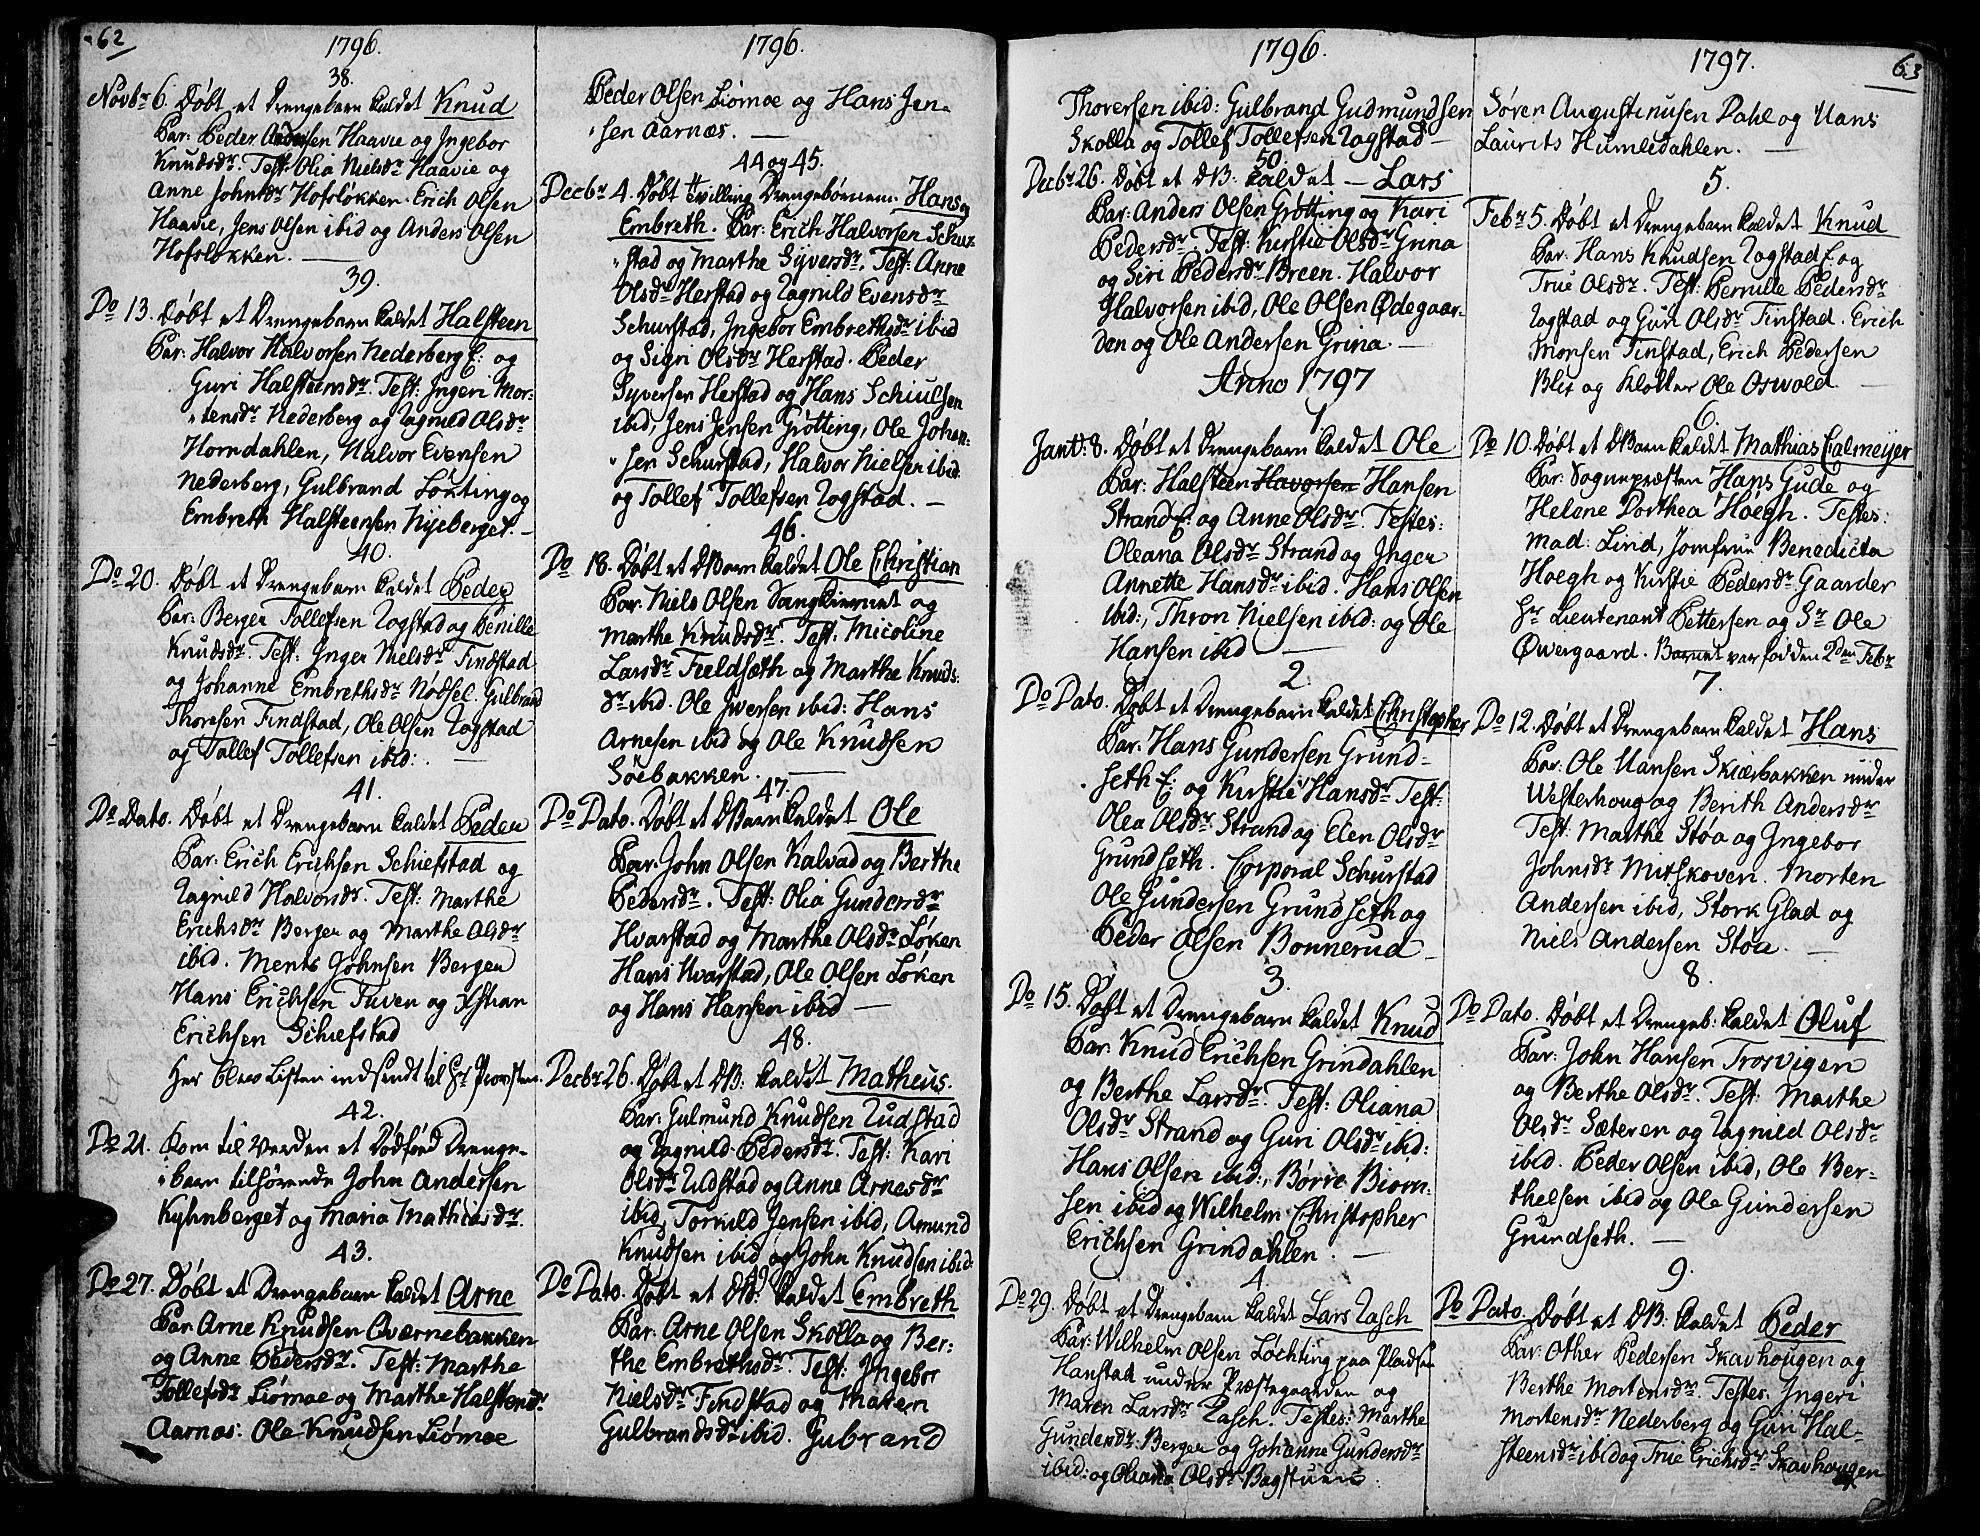 62
1796.
38.
Novbr 6. Döbt et Drengebarn kaldet Knud
Par: Peder Andersen Haavie og Ingebor
Knudsdr. Test: Olia Nielsdr Haavie og
Anne Johnsdr Hofslökken. Erich Olsen
Haavie, Jens Olsen ibid og Anders Olsen
Hofslökken.
39.
Do 13. Döbt et Drengebarn kaldet Halsteen
Par: Halvor Halvorsen Nederberg E: og
Guri Halsteensdr. Test: Ingeri Mor-
tensdr Nederberg og Ragnild Olsdr
Horndahlen, Halvor Evensen
Nederberg, Gulbrand Löxting og
Embreth Halsteensen Nyeberget.
40.
Do 20. Döbt et Drengebarn kaldet Peder
Par: Berger Tollefsen Rogstad og Penille
Knudsdr. Test: Inger Nielsdr Findstad
og Johanne Embrethsdr Nödsel. Gulbrand
Thoresen Findstad, Ole Olsen Rogstad
og Tollef Tollefsen ibid:.
41.
Do Dato. Döbt et Drengebarn kaldet Peder
Par: Erich Erichsen Schiefstad og
Ragnild Halvorsdr. Test: Marthe
Erichsdr Berger og Marthe Olsdr
ibid. Ments Johnsen Bergen
Hans Erichsen Tuven og Xstian
Erichsen Schiefstad
Her blev Listen indsendt til Hr Provsten.
42.
Do 21. Kom til Verden et Dödföd Drenge-
barn tilhörende John Andersen
Kyhnberget og Maria Mathiasdr.
43.
Do 27. Döbt et Drengebarn kaldet Arne
Par Arne Knudsen Qværnebakken
og Anne Pedersdr. Test: Marthe
Tollefsdr Liömoe og Marthe Halstendr
Aarnæs: Ole Knudsen Liömoe
1796.
Peder Olsen Liömoe og Hans Jen-
sen Aarnæs.
44 og 45.
Decbr 4. Döbt tvilling Drengebörnene Hans og
Embreth. Par: Erich Halvorsen Schur-
stad og Marthe Syversdr. Test: Anne
Olsdr Herstad og Ragnild Evensdr
Schurstad, Ingebor Embrethsdr ibid
og Sigri Olsdr Herstad. Peder
Syversen Herstad og Hans Schiulsen
ibid, Jens Jensen Grötting, Ole Johan-
sen Schurstad, Halvor Nielsen ibid
og Tollef Tollefsen Rogstad.
46.
Do 18. Döbt et DBarn kaldet Ole Christian
Par: Niels Olsen Sangkiernet og
Marthe Knudsdr. Test: Micoline
Larsdr Fieldsæth og Marthe Knuds-
dr ibid. Ole Iwersen ibid: Hans
Arnesen ibid og Ole Knudsen
Söebakken.
47.
Do Dato. Döbt et DBarn kaldet Ole
Par: John Olsen Kalvad og Berthe
Pedersdr. Test: Olia Gundersdr
Hvarstad og Marthe Olsdr Löken
Hans Hvarstad, Ole Olsen Löken
og Hans Hansen ibid
48.
Decbr 26. Döbt et DB: kaldet Matheus.
Par: Gulmund Knudsen Rudstad
og Ragnild Pedersdr. Test: Kari
Olsdr Rudstad og Anne Arnesdr
ibid, Torkild Jensen ibid, Amund
Knudsen ibid og John Knudsen ibid.
49.
Do Dato. Döbt et DB: kaldet Embreth
Par: Arne Olsen Skolla og Ber-
the Embrethsdr. Test: Ingebor
Nielsdr Findstad og Maren
Gulbrandsdr ibid. Gulbrand
1796.
Thoresen ibid: Gulbrand Gudmundsen
Skolla og Tollef Tollefsen Rogstad
50.
Decbr 26. Döbt et DB: kaldet Lars
Par: Anders Olsen Grötting og Kari
Pedersdr. Test: Kirstie Olsdr Grina
og Siri Pedersdr Breen. Halvor
Halvorsen ibid, Ole Olsen Ødegaar-
den og Ole Andersen Grina.
Anno 1797
1
Janr: 8. Döbt et Drengebarn kaldet Ole
Par: Halsteen Havorsen Hansen
Strand E: og Anne Olsdr. Testes:
Oleana Olsdr Strand og Inger
Annette Hansdr ibid. Hans Olsen
ibid:, Thron Nielsen ibid: og Ole
Hansen ibid
2
Do Dato. Döbt et Drengebarn kaldet Christopher
Par: Hans Gundersen Grund-
seth E: og Kirstie Hansdr Test:
Olea Olsdr Strand og Elen Olsdr
Grundseth. Corporal Schurstad
Ole Gundersen Grundseth og
Peder Olsen Bonnerud
3.
Do 15. Döbt et Drengebarn kaldet Knud
Par: Knud Erichsen Grindahlen
og Berthe Larsdr. Test: Oliana
Olsdr Strand og Guri Olsdr ibid:
Hans Olsen ibid:, Börre Biörn-
sen ibid og Wilhelm Christopher
Erichsen Grindahlen.
4
Do 29. Döbt et Drengebarn kaldet Lars Rasch
Par: Wilhelm Olsen Löchting paa Pladsen
Hanstad under Præstegaarden og
Maren Larsdr Rasch. Testes: Marthe
Gundersdr Berger og Johanne Gundersdr
ibid: og Oliana Olsdr Bagstuen
1797.
63
Sören Augustinusen Dahl og Hans
Laurits Humledahlen.
5.
Febr 5. Döbt et Drengebarn kaldet Knud
Par: Hans Knudsen Rogstad E og
True Olsdr. Test: Pernille Pedersdr
Rogstad og Guri Olsdr Finstad. Erich
Monsen Finstad, Erich Pedersen
Blix og Klokker Ole Oswold
6.
Do 10. Döbt et DBarn kaldet Mathias Calmeyer
Par: Sognepræsten Hans Gude og
Helene Dorthea Höegh. Testes:
Mad: Lind, Jomfrue Benedicta
Hoegh og Kirstie Pedersdr Gaarder
Hr Lieutenant Pettersen og Sr Ole
Øwergaard. Barnet var föd den 2den Febr
7.
Do 12. Döbt et Drengebarn kaldet Hans
Par: Ole Hansen Skiærbakken under
Westerhoug og Berith Andersdr
Test: Marthe Støa og Ingebor
Johnsdr Mitskoven. Morten
Andersen ibid, Stork Glad og
Niels Andersen Støa
8.
Do Dato. Döbt et Drengeb: kaldet Oluf
Par: John Hansen Trosvigen
og Berthe Olsdr. Test: Marthe
Olsdr Sæteren og Ragnild Olsdr
ibid. Peder Olsen ibid, Ole Ber-
thelsen ibid og Ole Gundersen
Grundseth.
9.
Do Dato. Döbt et DB: kaldet Peder
Par: Other Pedersen Skavhougen og
Berthe Mortensdr. Testes: Ingeri
Mortensdr Nederberg og Guri Hal-
steensdr ibid og True Erichsdr Skavhougen